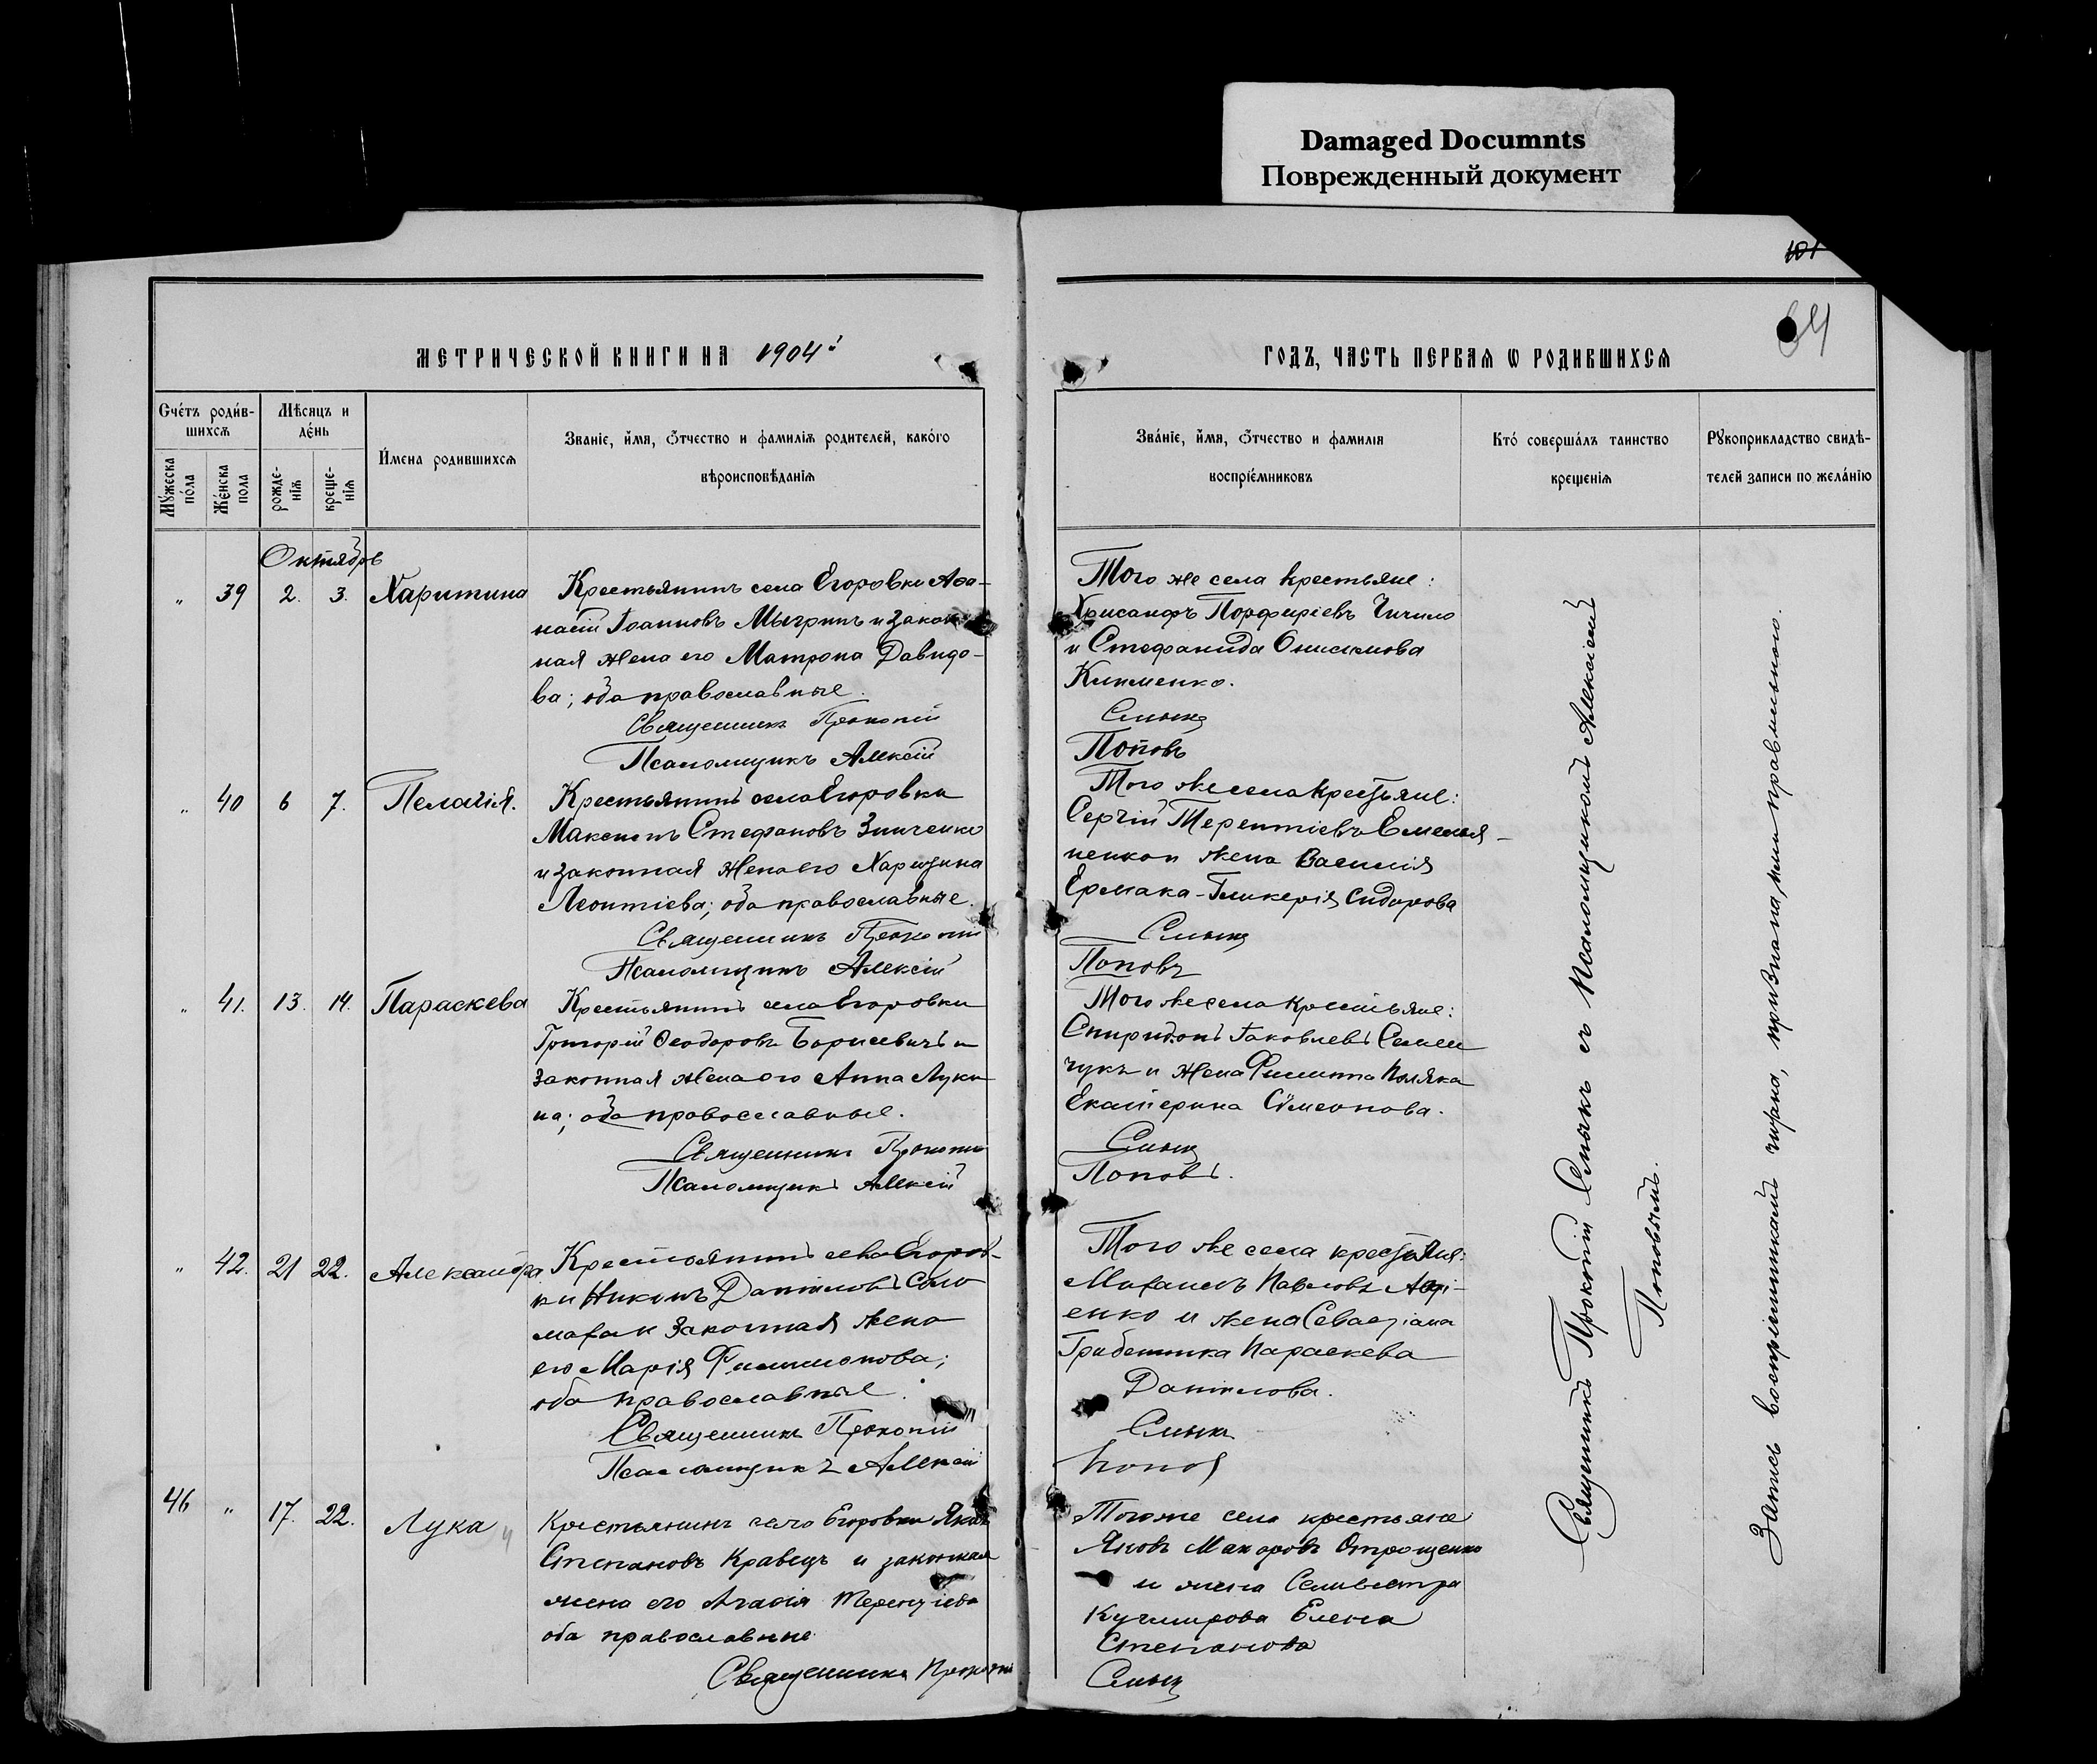 Damaged Documnts
Поврежденный документ
101
64
МЕТРИЧЕСКОЙ КНИГИ НА 1904й
ГОДЪ, ЧАСТЬ ПЕРВАЯ Ѡ РОДИВШИХСЯ
Счетъ родившихся
Мѣсяцъ и день
Имена родившихся
Званіе, имя, отчество и фамилія родителей, какого
вѣроисповѣданія
Мужеска пола
Женска пола
рожде-
нія
креще-
нія
Званіе, имя, отчество и фамилія
воспріемниковъ
Кто совершалъ таинство
крещенія
Рукоприкладство свидѣ-
телей записи по желанію
Октябрь
" 39 2. 3. Харитина
Крестьянинъ села Егоровки Аѳа-
насій Іоанновъ Мыгринъ и закон-
ная жена его Матрона Давидо-
ва; оба православные.
Священникъ Прокопій
Псаломщикъ Алексій
Того же села крестьяне:
Хрисанфъ Порфиріевъ Чичило
и Стефанида Онисимова
Клименко.
Смыкъ
Поповъ
" 40 6 7. Пелагія.
Крестьянинъ села Егоровки
Максимъ Стефановъ Зинченко
и законная жена его Харитина
Леонтіева; оба православные.
Священникъ Прокопій
Псаломщикъ Алексій
Того же села крестьяне:
Сергій Терентіевъ Емелья-
ненко и жена Василія
Ермака - Гликерія Сидорова
Смыкъ
Поповъ
" 41. 13. 14. Параскева
Крестьянинъ села Егоровки
Григорій Ѳеодоровъ Борисевичъ и
законная жена его Анна Луки-
на; оба православные.
Священникъ Прокопій
Псаломщикъ Алексій
Того же села крестьяне:
Спиридонъ Іаковлевъ Семен
чукъ и жена Филиппа Поляка
Екатерина Сѵмеонова.
Смыкъ
Поповъ.
" 42. 21 22. Александра
Крестьянинъ села Егоров-
ки Никонъ Даніиловъ Соло
маха и законная жена
его Марія Филимонова;
оба православные.
Священникъ Прокопій
Псаломщикъ Алексій
Того же села крестьяне:
Михаилъ Павловъ
енко и жена Севастіана
Гребенника Параскева
Даніилова.
Смыкъ
Попов
46 " 17. 22. Лука
Крестьянинъ село Егоровки Яковъ
Степановъ Кравецъ и законная
жена его Агафія Терентіева
оба православные
Священникъ Прокопій
Того же села крестьяне
Яковъ Макаровъ Отрощенко
и жена Селивестра
Кучмирова Елена
Степанова
Смыкъ
Священникъ Прокопій Смыкъ съ Псаломщикомъ Алексіемъ
Поповымъ.
Запись воспріемниками читана, признана ими правильною.